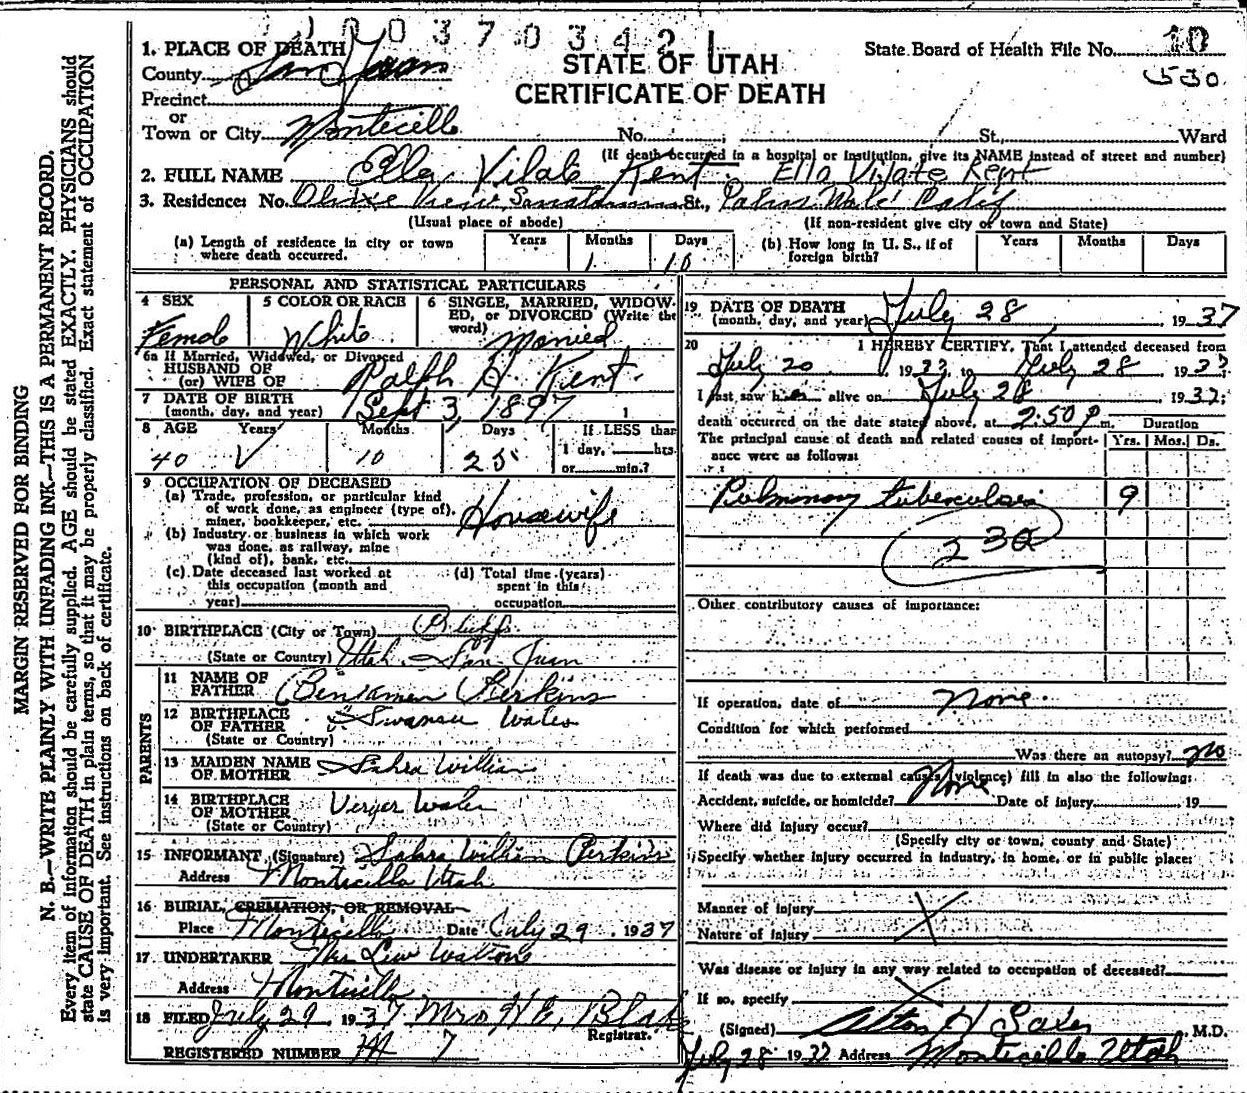 10037034 2 1
1. PLACE OF DEATH
County San Juan
Precinct
or
Town or City Monticello No. ; St., Ward
STATE OF UTAH
CERTIFICATE OF DEATH
State Board of Health File No. 10
530
(If death occurred in a hospital or institution, give its NAME instead of street and number)
2. FULL NAME Ella Vilate Kent. Ella Vilate Kent
3. Residence: No. Olive View Sanatorium St., Calif
(Usual place of abode) (If non-resident give city or town and State)
(a) Length of residence in city or town where death occurred. Years Months 1 Days 10
(b) How long in U. S., if of foreign birth? Years Months Days
PERSONAL AND STATISTICAL PARTICULARS
4 SEX Female
5 COLOR OR RACE White
6 SINGLE, MARRIED, WIDOWED, or DIVORCED (Write the word) Married
6a If Married, Widowed, or Divorced
HUSBAND OF
(or) WIFE OF Ralph H. Kent.
7 DATE OF BIRTH
(month, day, and year) Sept 3, 1897
8 AGE Years 40 Months 10 Days 25
If LESS than
1 day, hrs.
or min.?
9 OCCUPATION OF DECEASED
(a) Trade, profession, or particular kind
of work done, as engineer (type of),
miner, bookkeeper, etc. Housewife
(b) Industry or business in which work
was done, as railway, mine
(kind of), bank, etc.
(c) Date deceased last worked at
this occupation (month and
year)
(d) Total time (years)
spent in this
occupation
10 BIRTHPLACE (City or Town) Bluff
(State or Country) Utah San Juan
PARENTS
11 NAME OF
FATHER Benjamen Perkins
12 BIRTHPLACE
OF FATHER Swansea Wales
(State or Country)
13 MAIDEN NAME
OF MOTHER Sahra William
14 BIRTHPLACE
OF MOTHER Wales
(State or Country)
15 INFORMANT (Signature) Sahra William Perkins
Address Monticello Utah
16 BURIAL, CREMATION, OR REMOVAL
Place Monticello Date July 29, 1937
17 UNDERTAKER Walton
Address Monticello
18 FILED July 29 1937 Mrs H E,
Registrar.
REGISTERED NUMBER 7
19 DATE OF DEATH
(month, day, and year) July 28, 1937
20 I HEREBY CERTIFY, That I attended deceased from
July 20, 1937 to July 28 1937
I last saw her alive on July 28 1937;
death occurred on the date stated above, at 2:50 P m.
Duration
The principal cause of death and related causes of importance were as follows:
Yrs. Mos. Ds.
Pulmonary tuberculosis 9
23a
Other contributory causes of importance:
If operation, date of None.
Condition for which performed
Was there an autopsy? no
If death was due to external causes (violence) fill in also the following:
Accident, suicide, or homicide? None. Date of injury 19
Where did injury occur?
(Specify city or town, county and State)
Specify whether injury occurred in industry, in home, or in public place:
Manner of injury
Nature of injury
Was disease or injury in any way related to occupation of deceased?
If so, specify
(Signed) M.D.
July 28 1937 Address Monticello Utah
MARGIN RESERVED FOR BINDING
N. B.—WRITE PLAINLY WITH UNFADING INK—THIS IS A PERMANENT RECORD.
Every item of information should be carefully supplied. AGE should be stated EXACTLY. PHYSICIANS should
state CAUSE OF DEATH in plain terms, so that it may be properly classified. Exact statement of OCCUPATION
is very important. See instructions on back of certificate.